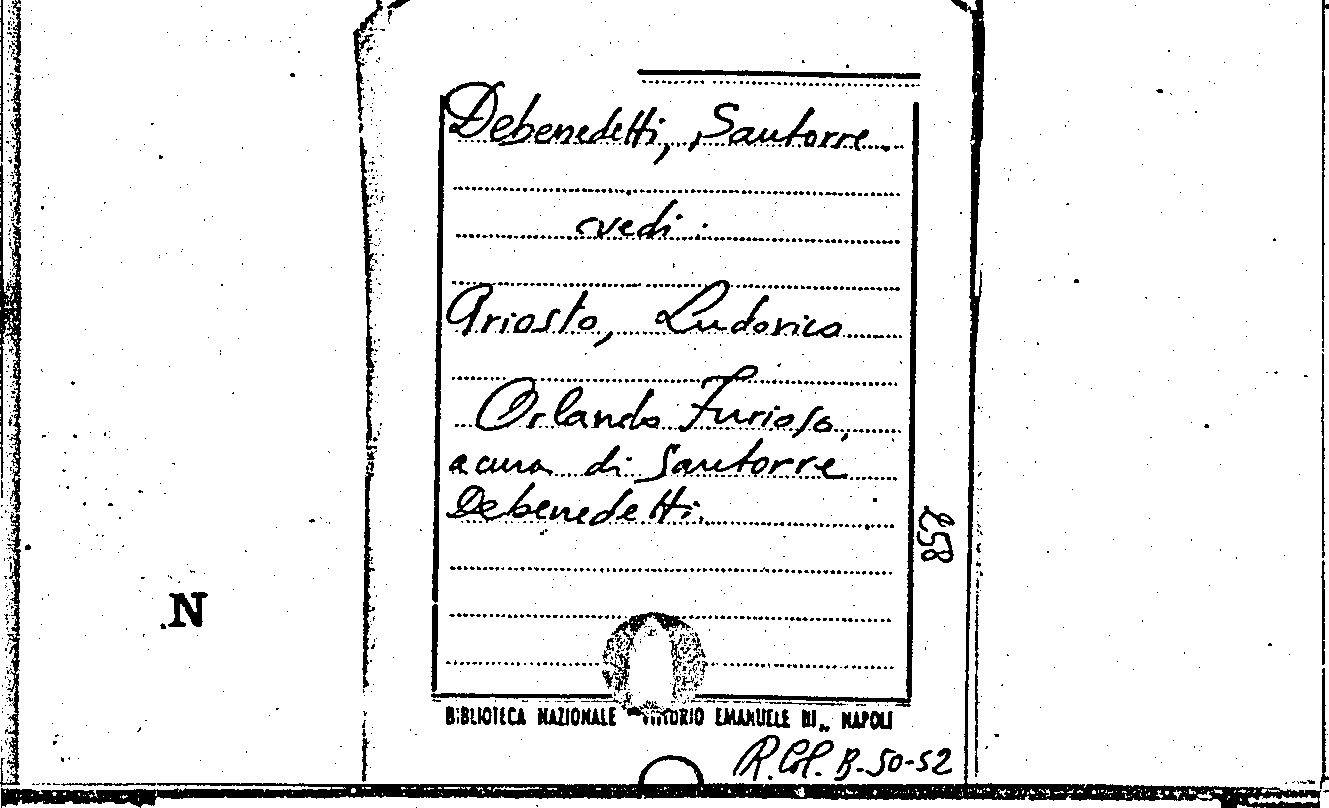 Debenedetti, Santorre.
vedi:
Ariosto, Ludovico
Orlando Furioso,
a cura di Santorre
Debenedetti.
258
N
BIBLIOTECA NAZIONALE "VITTORIO EMANUELE III„ NAPOLI
R. Col. B-50-52